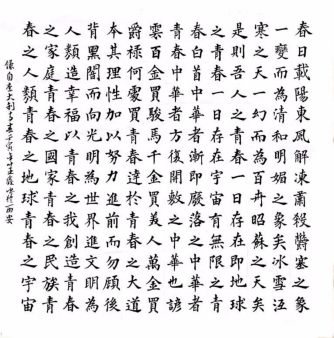 春日載陽東風解凍蕭殺鬱塞之象
一變而為清和明媚之象矣冰雪沍
寒之天一幻而為百卉昭蘇之天矣
是則吾人之青春一日存在即地球
之青春一日存在宇宙有無限之青
春白首中華者漸即廢落之中華者
青春中華者方復開敷之中華也諺
雲百金買駿馬千金買美人萬金買
爵祿何處買青春達於青春之大道
本其理性加以努力進前而勿顧後
背黑闇而向光明為世界進文明為
人類造幸福以青春之我創造青春
之家庭青春之國家青春之民族青
春之人類青春之地球青春之宇宙
自李大釗西安